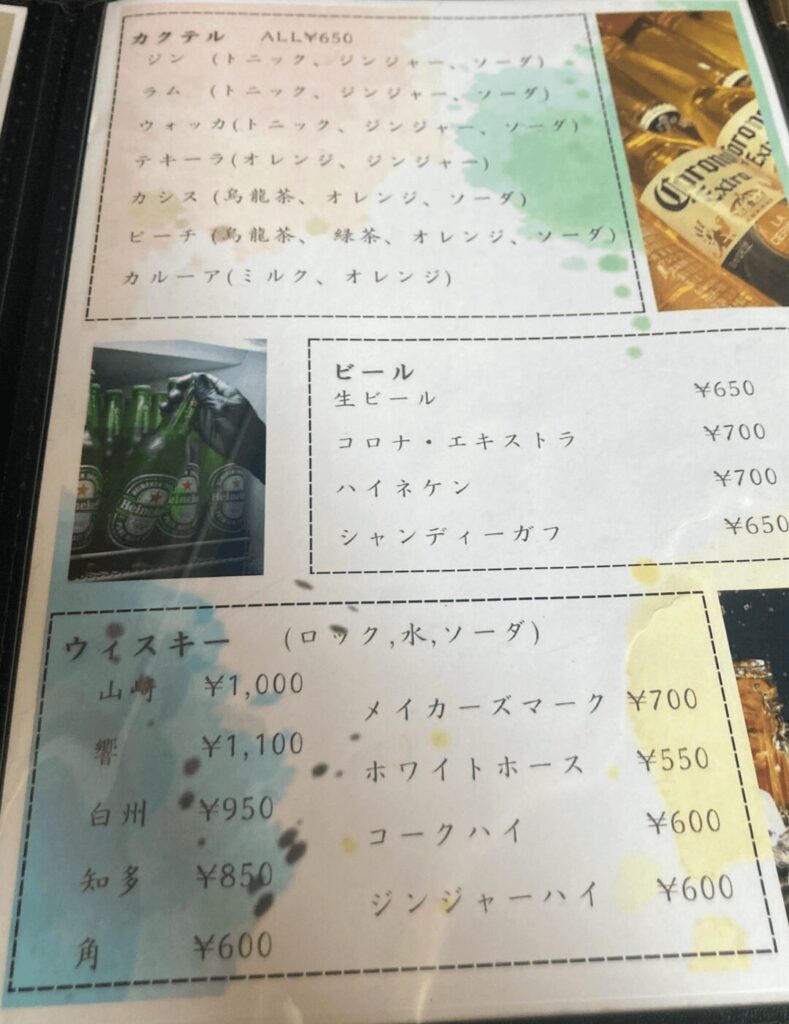 カクテル ALL¥650
ジン (トニック、ジンジャー、ソーダ)
ラム (トニック、ジンジャー、ソーダ)
ウォッカ(トニック、ジンジャー、ソーダ)
テキーラ(オレンジ、ジンジャー)
カシス (烏龍茶、オレンジ、ソーダ)
ピーチ (烏龍茶、緑茶、オレンジ、ソーダ)
カルーア(ミルク、オレンジ)
Corona
Extra
ビール
生ビール ¥650
コロナ・エキストラ ¥700
ハイネケン ¥700
シャンディーガフ ¥650
Heineken
ウィスキー (ロック,水,ソーダ)
山崎 ¥1,000
響 ¥1,100
白州 ¥950
知多 ¥850
角 ¥600
メイカーズマーク ¥700
ホワイトホース ¥550
コークハイ ¥600
ジンジャーハイ ¥600